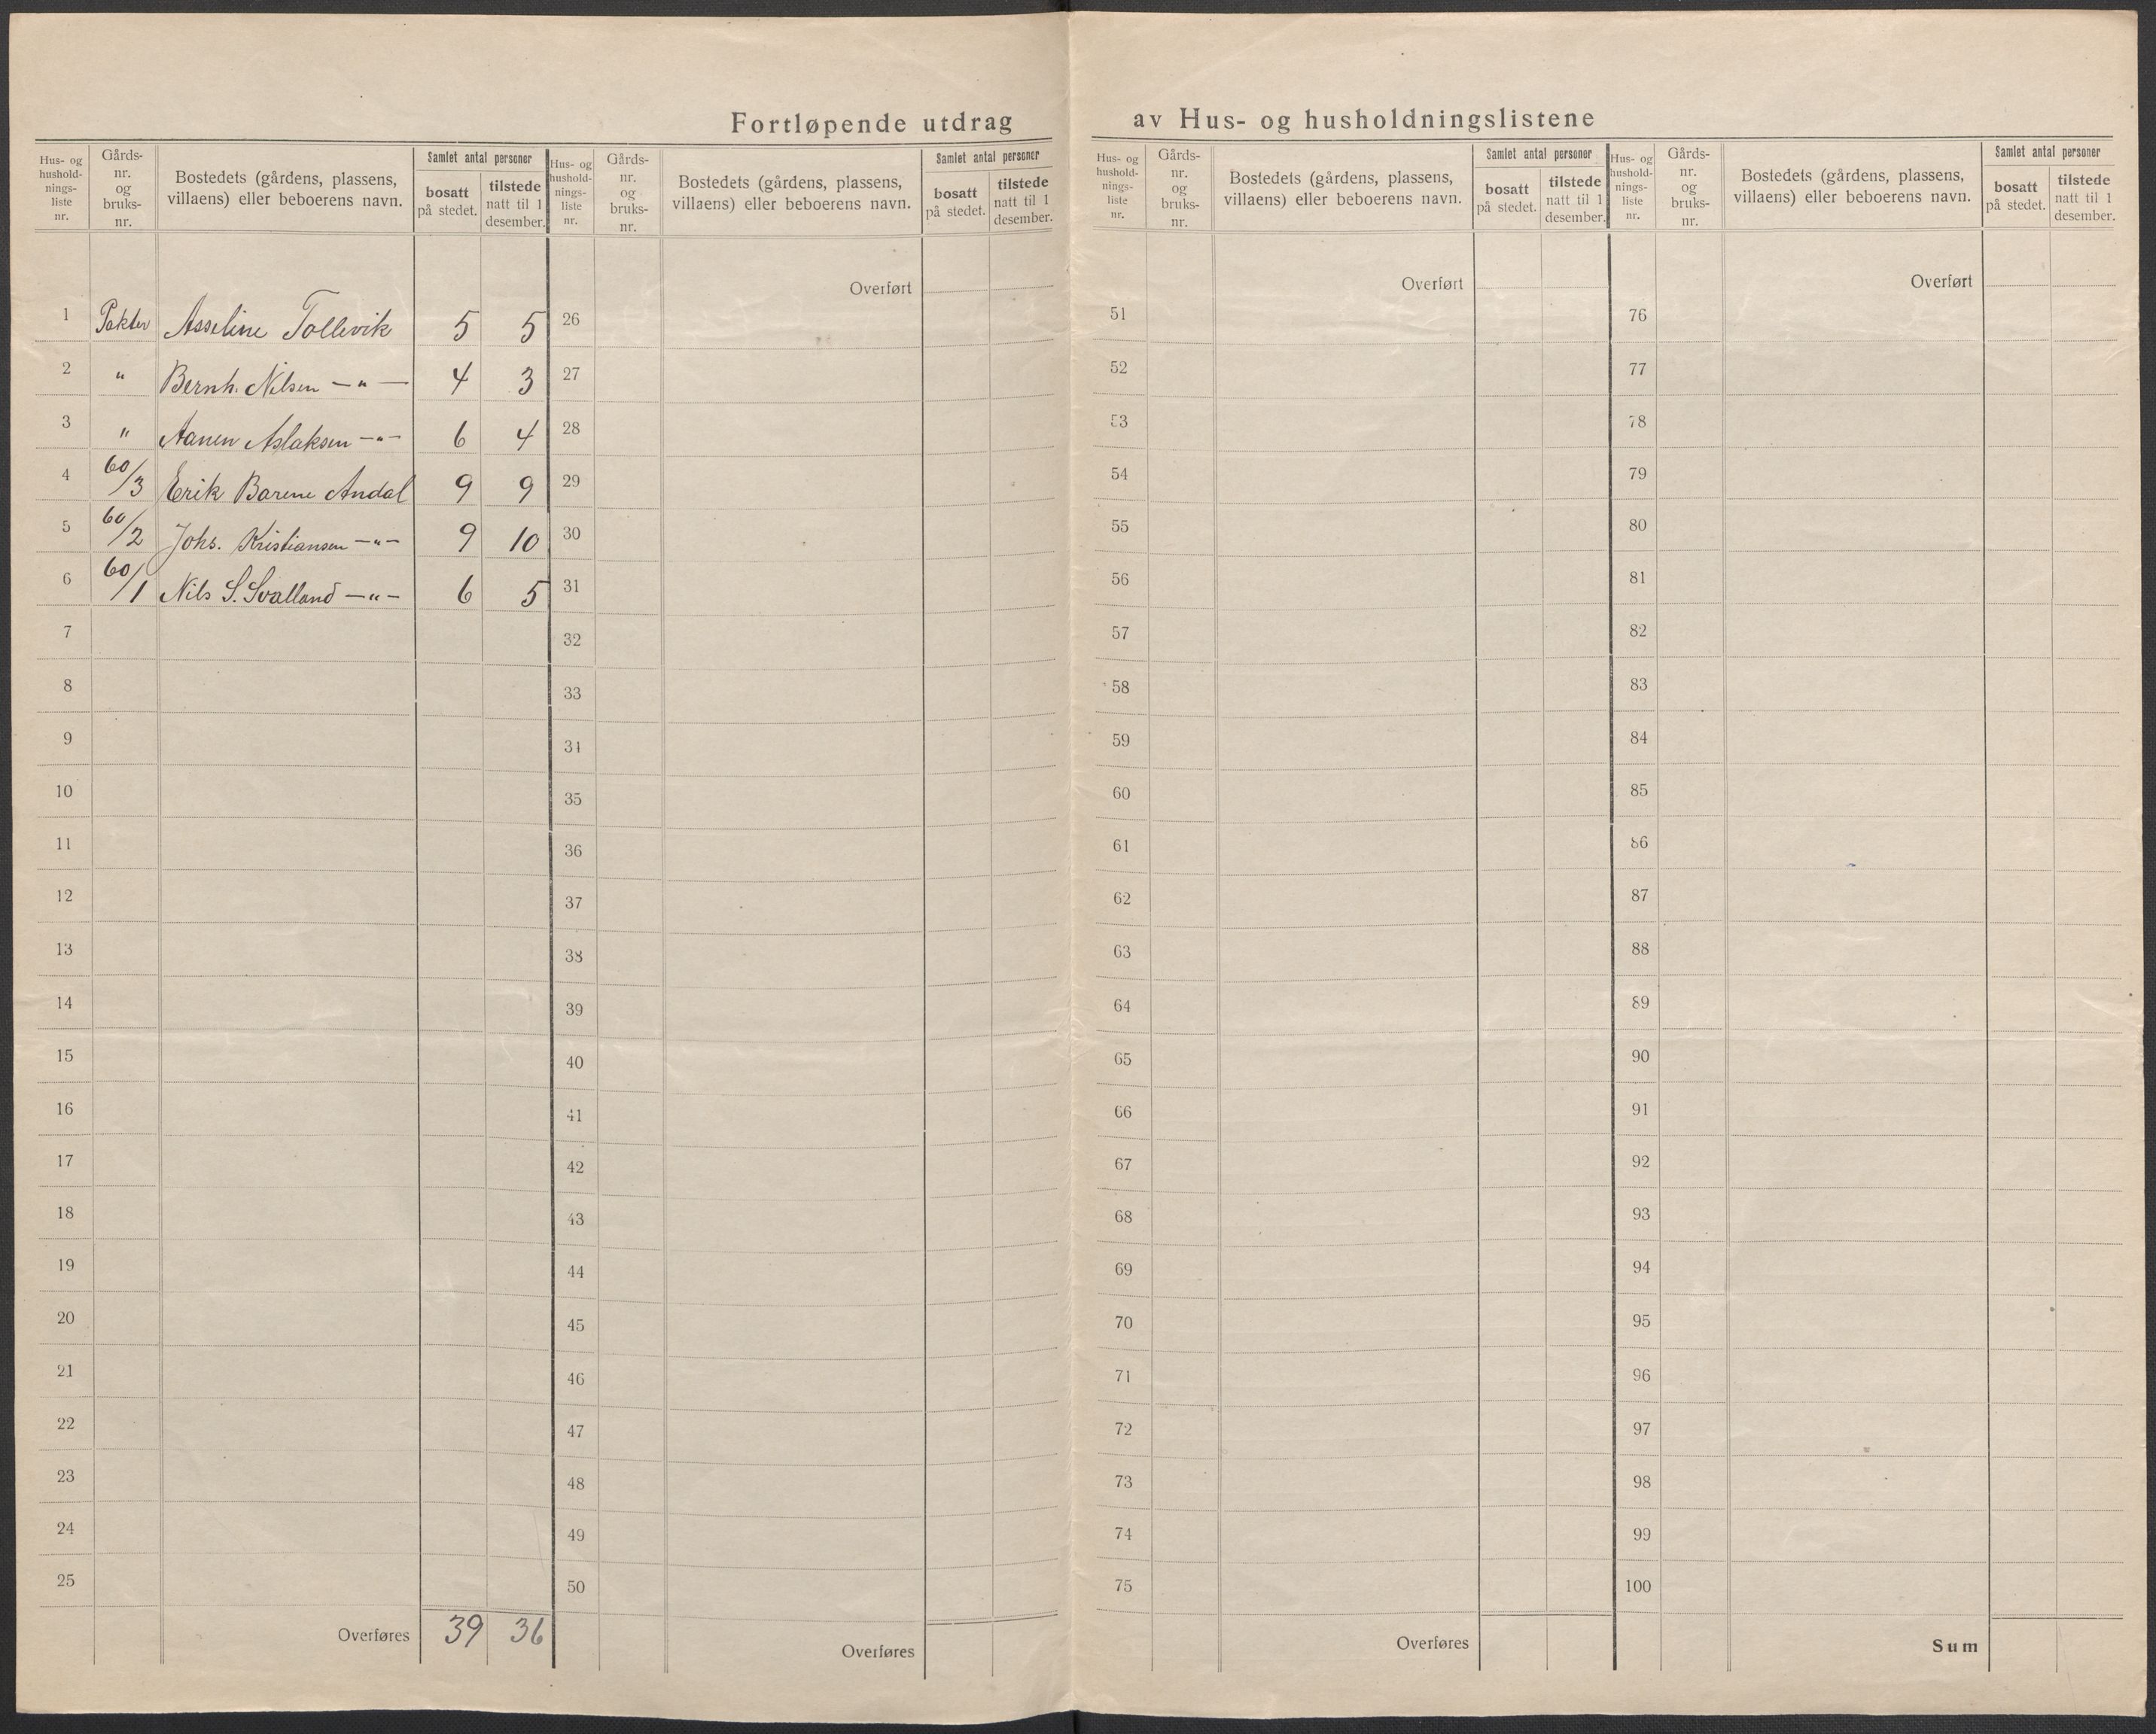 Fortløpende utdrag av Hus- og husholdningslistene
Hus- og
hushold-
nings-
liste
nr.
Gårds-
nr.
og
bruks-
nr.
Bostedets (gårdens, plassens,
villaens) eller beboerens navn.
Samlet antal personer
bosatt
på stedet.
tilstede
natt til 1
desember.
1 Asseline Tollevik 5 5
2 " Bernh. Nilsen —"— 4 3
3 " Aanen Aslaksen —"— 6 4
4 60/3 Erik Barene Andal 9 9
5 60/2 Johs. Kristiansen —"— 9 10
6 60/1 Nils S. Svalland —"— 6 5
7
8
9
10
11
12
13
14
15
16
17
18
19
20
21
22
23
24
25
Overføres 39 36
Hus- og
hushold-
nings-
liste
nr.
Gårds-
nr.
og
bruks-
nr.
Bostedets (gårdens, plassens,
villaens) eller beboerens navn.
Samlet antal personer
bosatt
på stedet.
tilstede
natt til 1
desember.
Overført
26
27
28
29
30
31
32
33
34
35
36
37
38
39
40
41
42
43
44
45
46
47
48
49
50
Overføres
Hus- og
hushold-
nings-
liste
nr.
Gårds-
nr.
og
bruks-
nr.
Bostedets (gårdens, plassens,
villaens) eller beboerens navn.
Samlet antal personer
bosatt
på stedet.
tilstede
natt til 1
desember.
Overført
51
52
53
54
55
56
57
58
59
60
61
62
63
64
65
66
67
68
69
70
71
72
73
74
75
Overføres
Hus- og
hushold-
nings-
liste
nr.
Gårds-
nr.
og
bruks-
nr.
Bostedets (gårdens, plassens,
villaens) eller beboerens navn.
Samlet antal personer
bosatt
på stedet.
tilstede
natt til 1
desember.
Overført
76
77
78
79
80
81
82
83
84
85
86
87
88
89
90
91
92
93
94
95
96
97
98
99
100
Sum